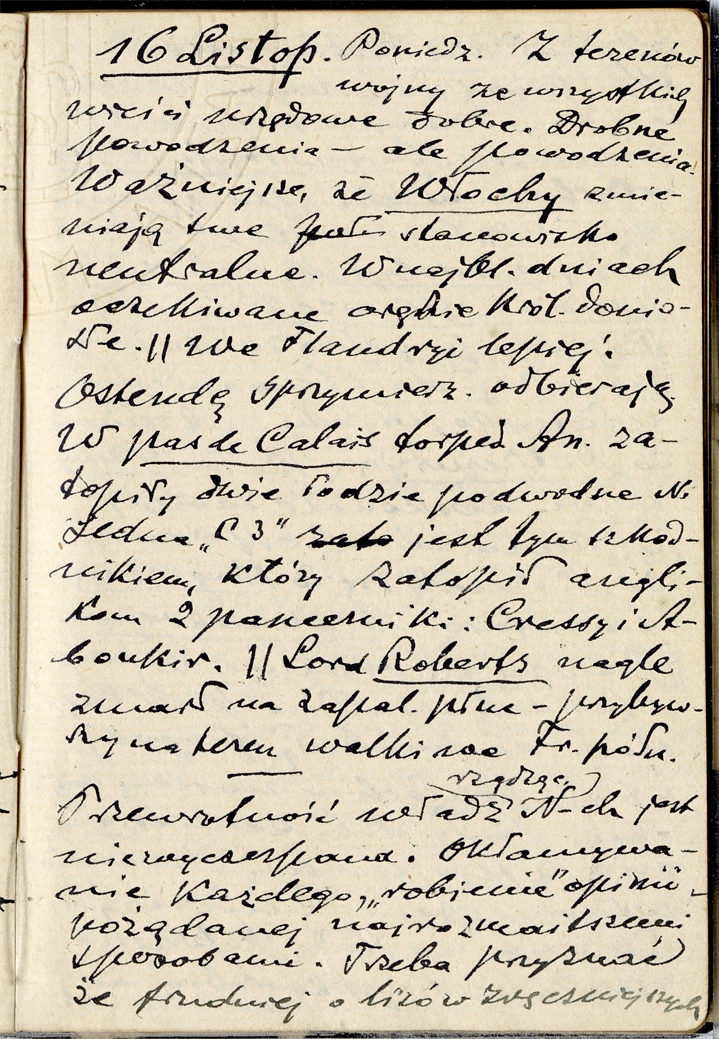 16 Listop. Poniedz. Z terenów
wojny ze wszystkich
wieści urzędowe dobre. Drobne
powodzenia – ale powodzenia.
Ważniejsze, że Włochy zmie-
niają swe stanowisko
neutralne. W najbl. dniach
oczekiwane orędzie Król. donio-
słe. || We Flandryi lepiej.
Ostendę sprzymierz. odbierają.
W pas de Calais torped. An. za-
topiły dwie łodzie podwodne N.
Jedna „C 3" zato jest tym szkod-
nikiem, który zatopił angli-
kom 2 pancerniki: Cressy i A-
boukir. || Lord Roberts nagle
zmarł na zapal. płuc – przybyw-
szy na teren walki we Fr. półn.
rządząc.
Przewrotność władz N-ch jest
niewyczerpana. Okłamywa-
nie każdego, „robienie" opinii
pożądanej najrozmaitszemi
sposobami. Trzeba przyznać
że trudniej o lisów zręczniejszych